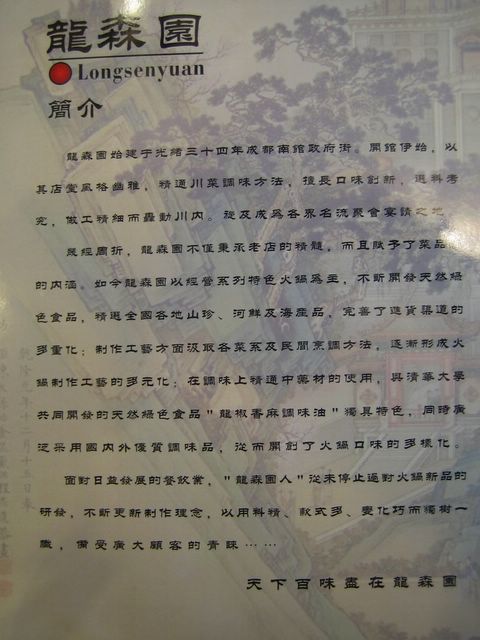 龍森園
Longsenyuan
簡介
龍森園始建于光緒三十四年成都南館政府街。開館伊始，以
其店堂風格幽雅，精通川菜調味方法，擅長口味創新，選料考
究，做工精細而轟動川内。從及成爲各界名流聚會宴請之地。
幾經周折，龍森園不僅秉承老店的精髓，而且賦予了菜品
的内涵。如今龍森園以經營系列特色火鍋爲主，不斷開發天然綠
色食品，精選全國各地山珍、河鮮及海産品，完善了進貨渠道的
多重化；制作工藝方面汲取各菜系及民間烹調方法，逐漸形成火
鍋制作工藝的多元化；在調味上精通中藥材的使用，與清華大學
共同開發的天然綠色食品"龍椒香麻調味油"獨具特色，同時廣
泛采用國内外優質調味品，從而開創了火鍋口味的多樣化。
面對日益發展的餐飲業，"龍森園人"從未停止過對火鍋新品的
研發，不斷更新制作理念，以用料精、款式多、變化巧而獨樹一
幟，備受廣大顧客的青睞……
天下百味盡在龍森園